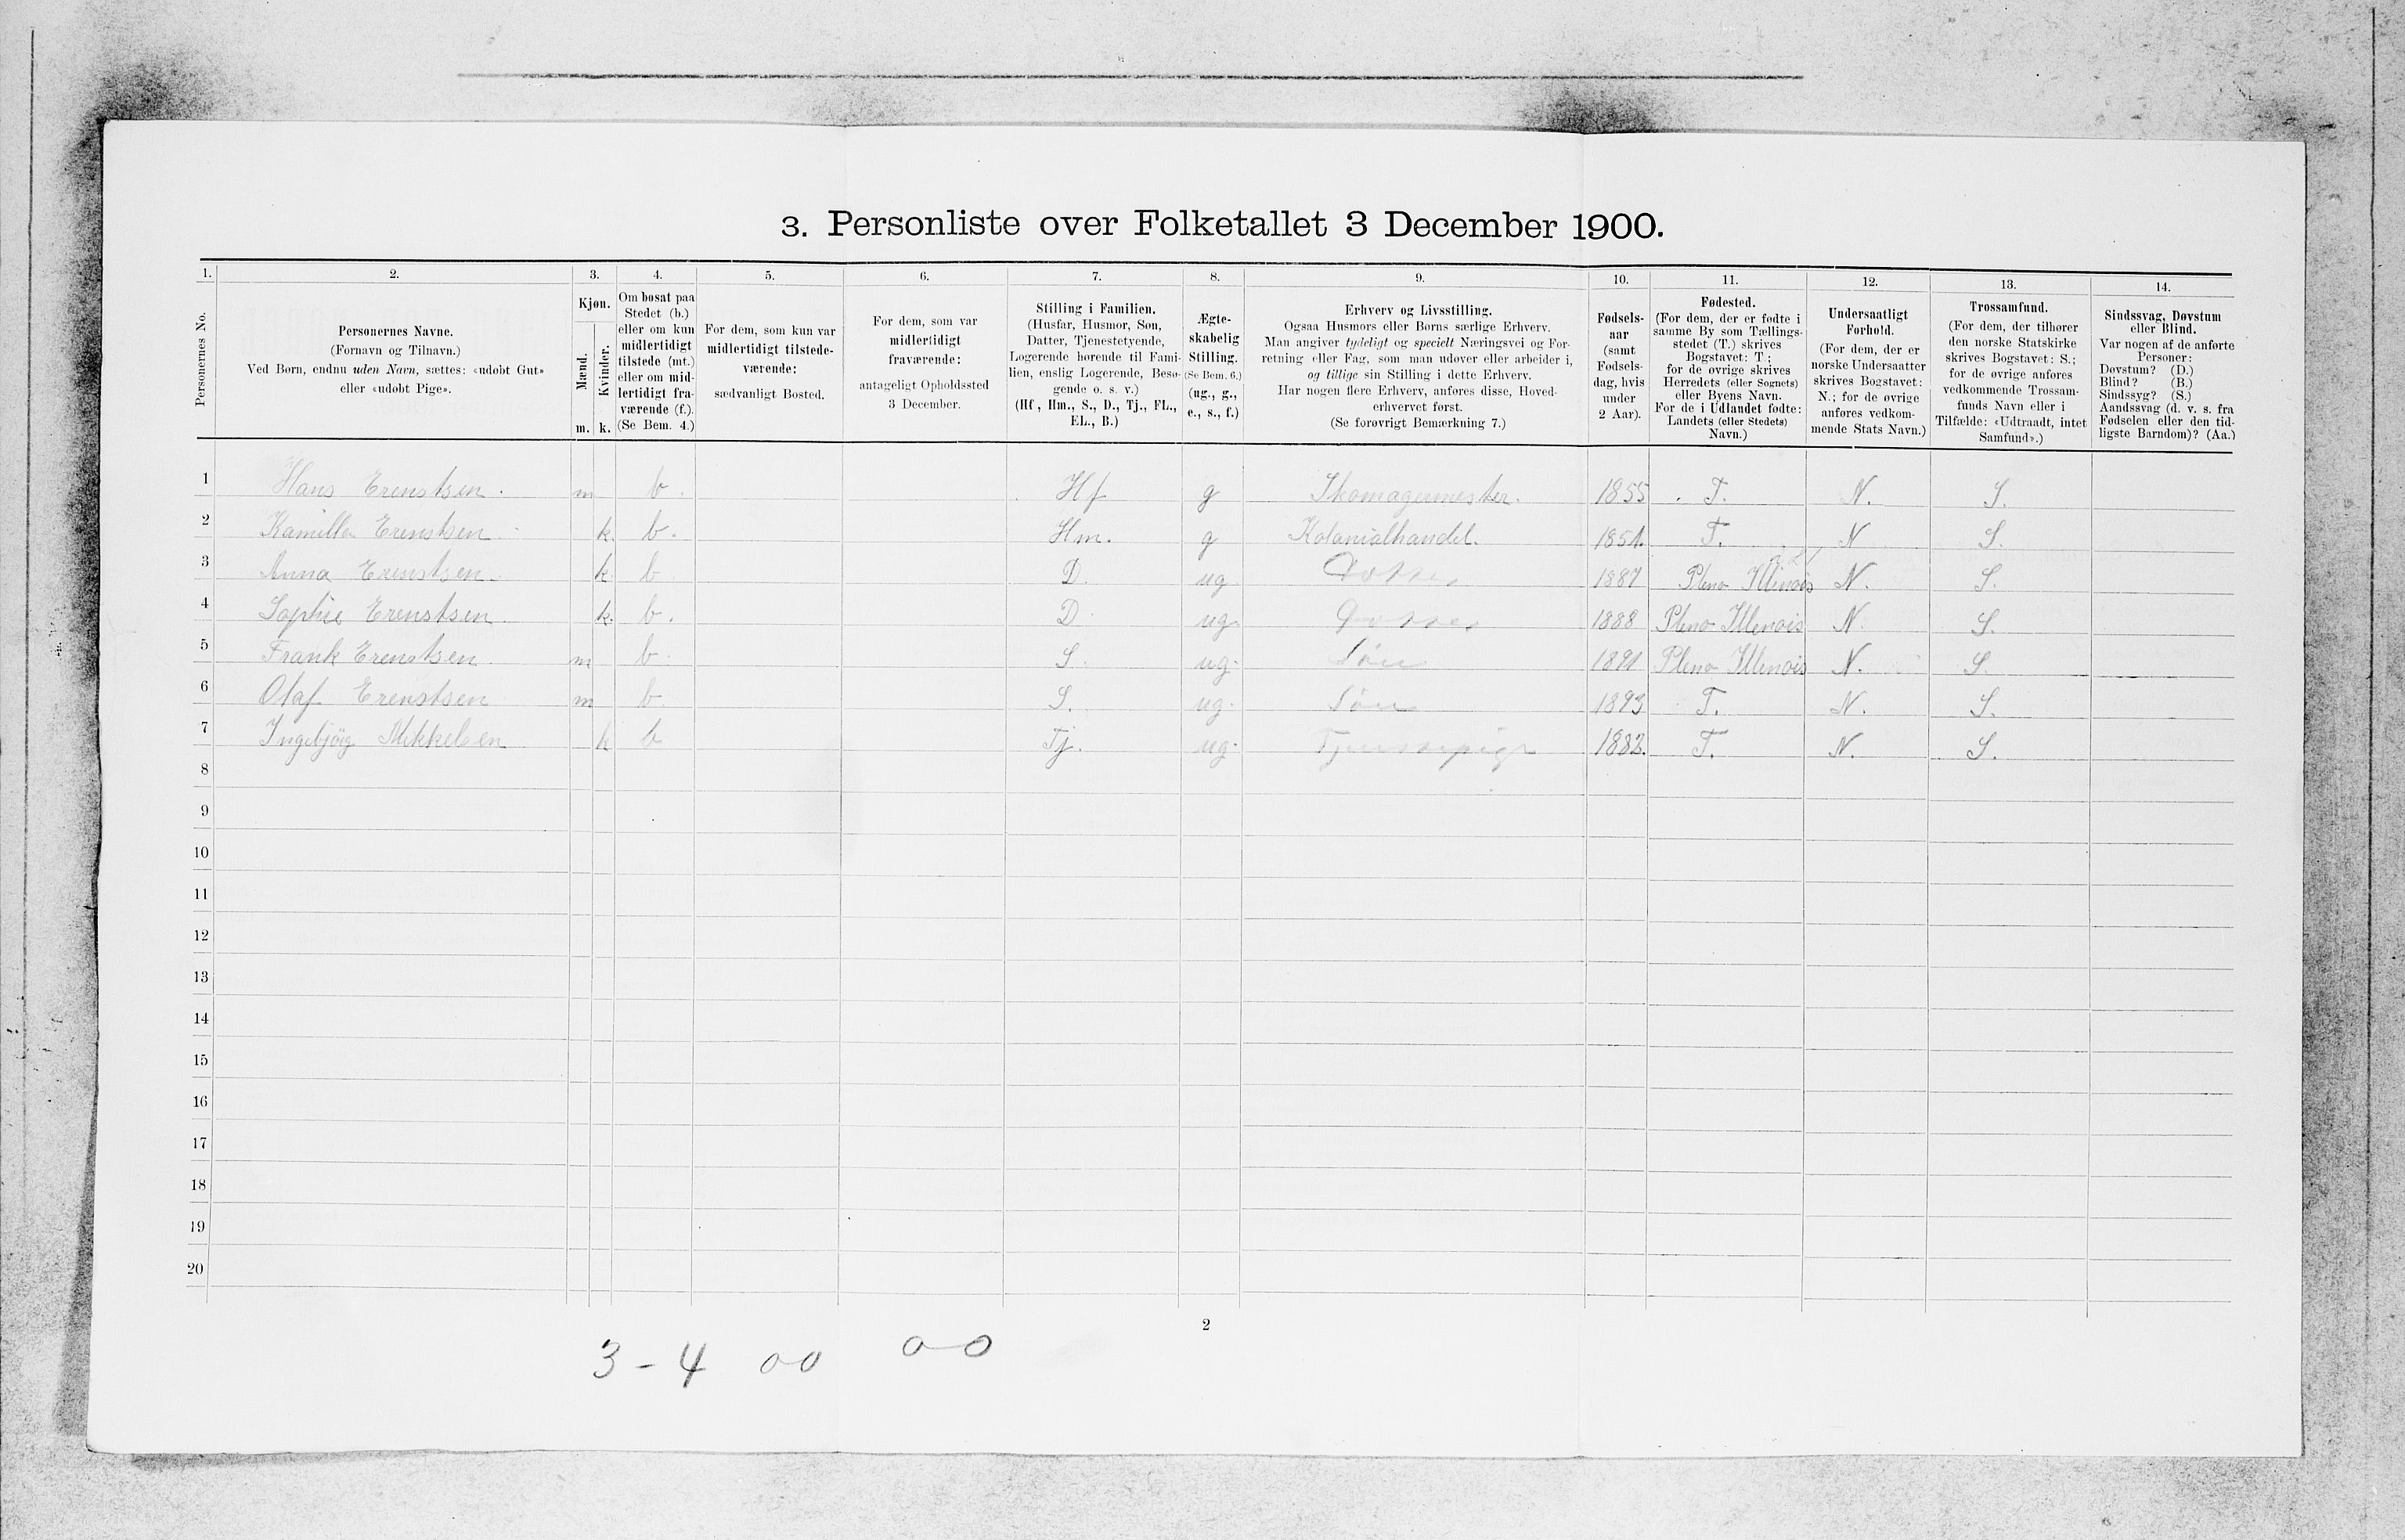 3. Personliste over Folketallet 3 December 1900.
1. 2. 3. 4. 5. 6. 7. 8. 9. 10. 11. 12. 13. 14.
Personernes No.
Personernes Navne.
(Fornavn og Tilnavn.)
Ved Børn, endnu uden Navn, sættes: «udøbt Gut»
eller «udøbt Pige».
Kjøn.
Mænd.
Kvinder.
m. k.
Om bosat paa
Stedet (b.)
eller om kun
midlertidigt
tilstede (mt.)
eller om mid-
lertidigt fra-
værende (f.).
(Se Bem. 4.)
For dem, som kun var
midlertidigt tilstede-
værende:
sædvanligt Bosted.
For dem, som var
midlertidigt
fraværende:
antageligt Opholdssted
3 December.
Stilling i Familien.
(Husfar, Husmor, Søn,
Datter, Tjenestetyende,
Logerende hørende til Fami-
lien, enslig Logerende, Besø-
gende o. s. v.)
(Hf, Hm., S., D., Tj., FL.,
EL., B.)
Ægte-
skabelig
Stilling.
(Se Bem. 6.)
(ug., g.,
e., s., f.)
Erhverv og Livsstilling.
Ogsaa Husmors eller Børns særlige Erhverv.
Man angiver tydeligt og specielt Næringsvei og For-
retning eller Fag, som man udøver eller arbeider i,
og tillige sin Stilling i dette Erhverv.
Har nogen flere Erhverv, anføres disse, Hoved-
erhvervet først.
(Se forøvrigt Bemærkning 7.)
Fødsels-
aar
(samt
Fødsels-
dag, hvis
under
2 Aar).
Fødested.
(For dem, der er fødte i
samme By som Tællings-
stedet (T.) skrives
Bogstavet: T.;
for de øvrige skrives
Herredets (eller Sognets)
eller Byens Navn.
For de i Udlandet fødte:
Landets (eller Stedets)
Navn.)
Undersaatligt
Forhold.
(For dem, der er
norske Undersaatter
skrives Bogstavet:
N.; for de øvrige
anføres vedkom-
mende Stats Navn.)
Trossamfund.
(For dem, der tilhører
den norske Statskirke
skrives Bogstavet: S.;
for de øvrige anføres
vedkommende Trossam-
funds Navn eller i
Tilfælde: «Udtraadt, intet
Samfund».)
Sindssvag, Døvstum
eller Blind.
Var nogen af de anførte
Personer:
Døvstum? (D.)
Blind? (B.)
Sindssyg? (S.)
Aandssvag (d. v. s. fra
Fødselen eller den tid-
ligste Barndom)? (Aa.)
1 Hans Erenstsen. m b. Hf g Skomagermester. 1855 T. N. S.
2 Kamilla Erenstsen k. b. Hm. g Kolonialhandel. 1851. T. N S.
3 Anna Erenstsen. k b. D. ug Dotter 1887 Pleno Illinois N. S.
4 Sophie Erenstsen. k. b. D. ug. Dotter 1888 Pleno Illenois N. S.
5 Frank Erenstsen. m b. S. ug. Søn 1891 Pleno Illenois N. S.
6 Olaf Erenstsen m b. S. ug. Søn 1893 T. N. S.
7 Ingebjörg Mikkelsen k b Tj. ug. Tjenestepige 1882. T. N. S.
8
9
10
11
12
13
14
15
16
17
18
19
20
2
3 - 4 00 0-0